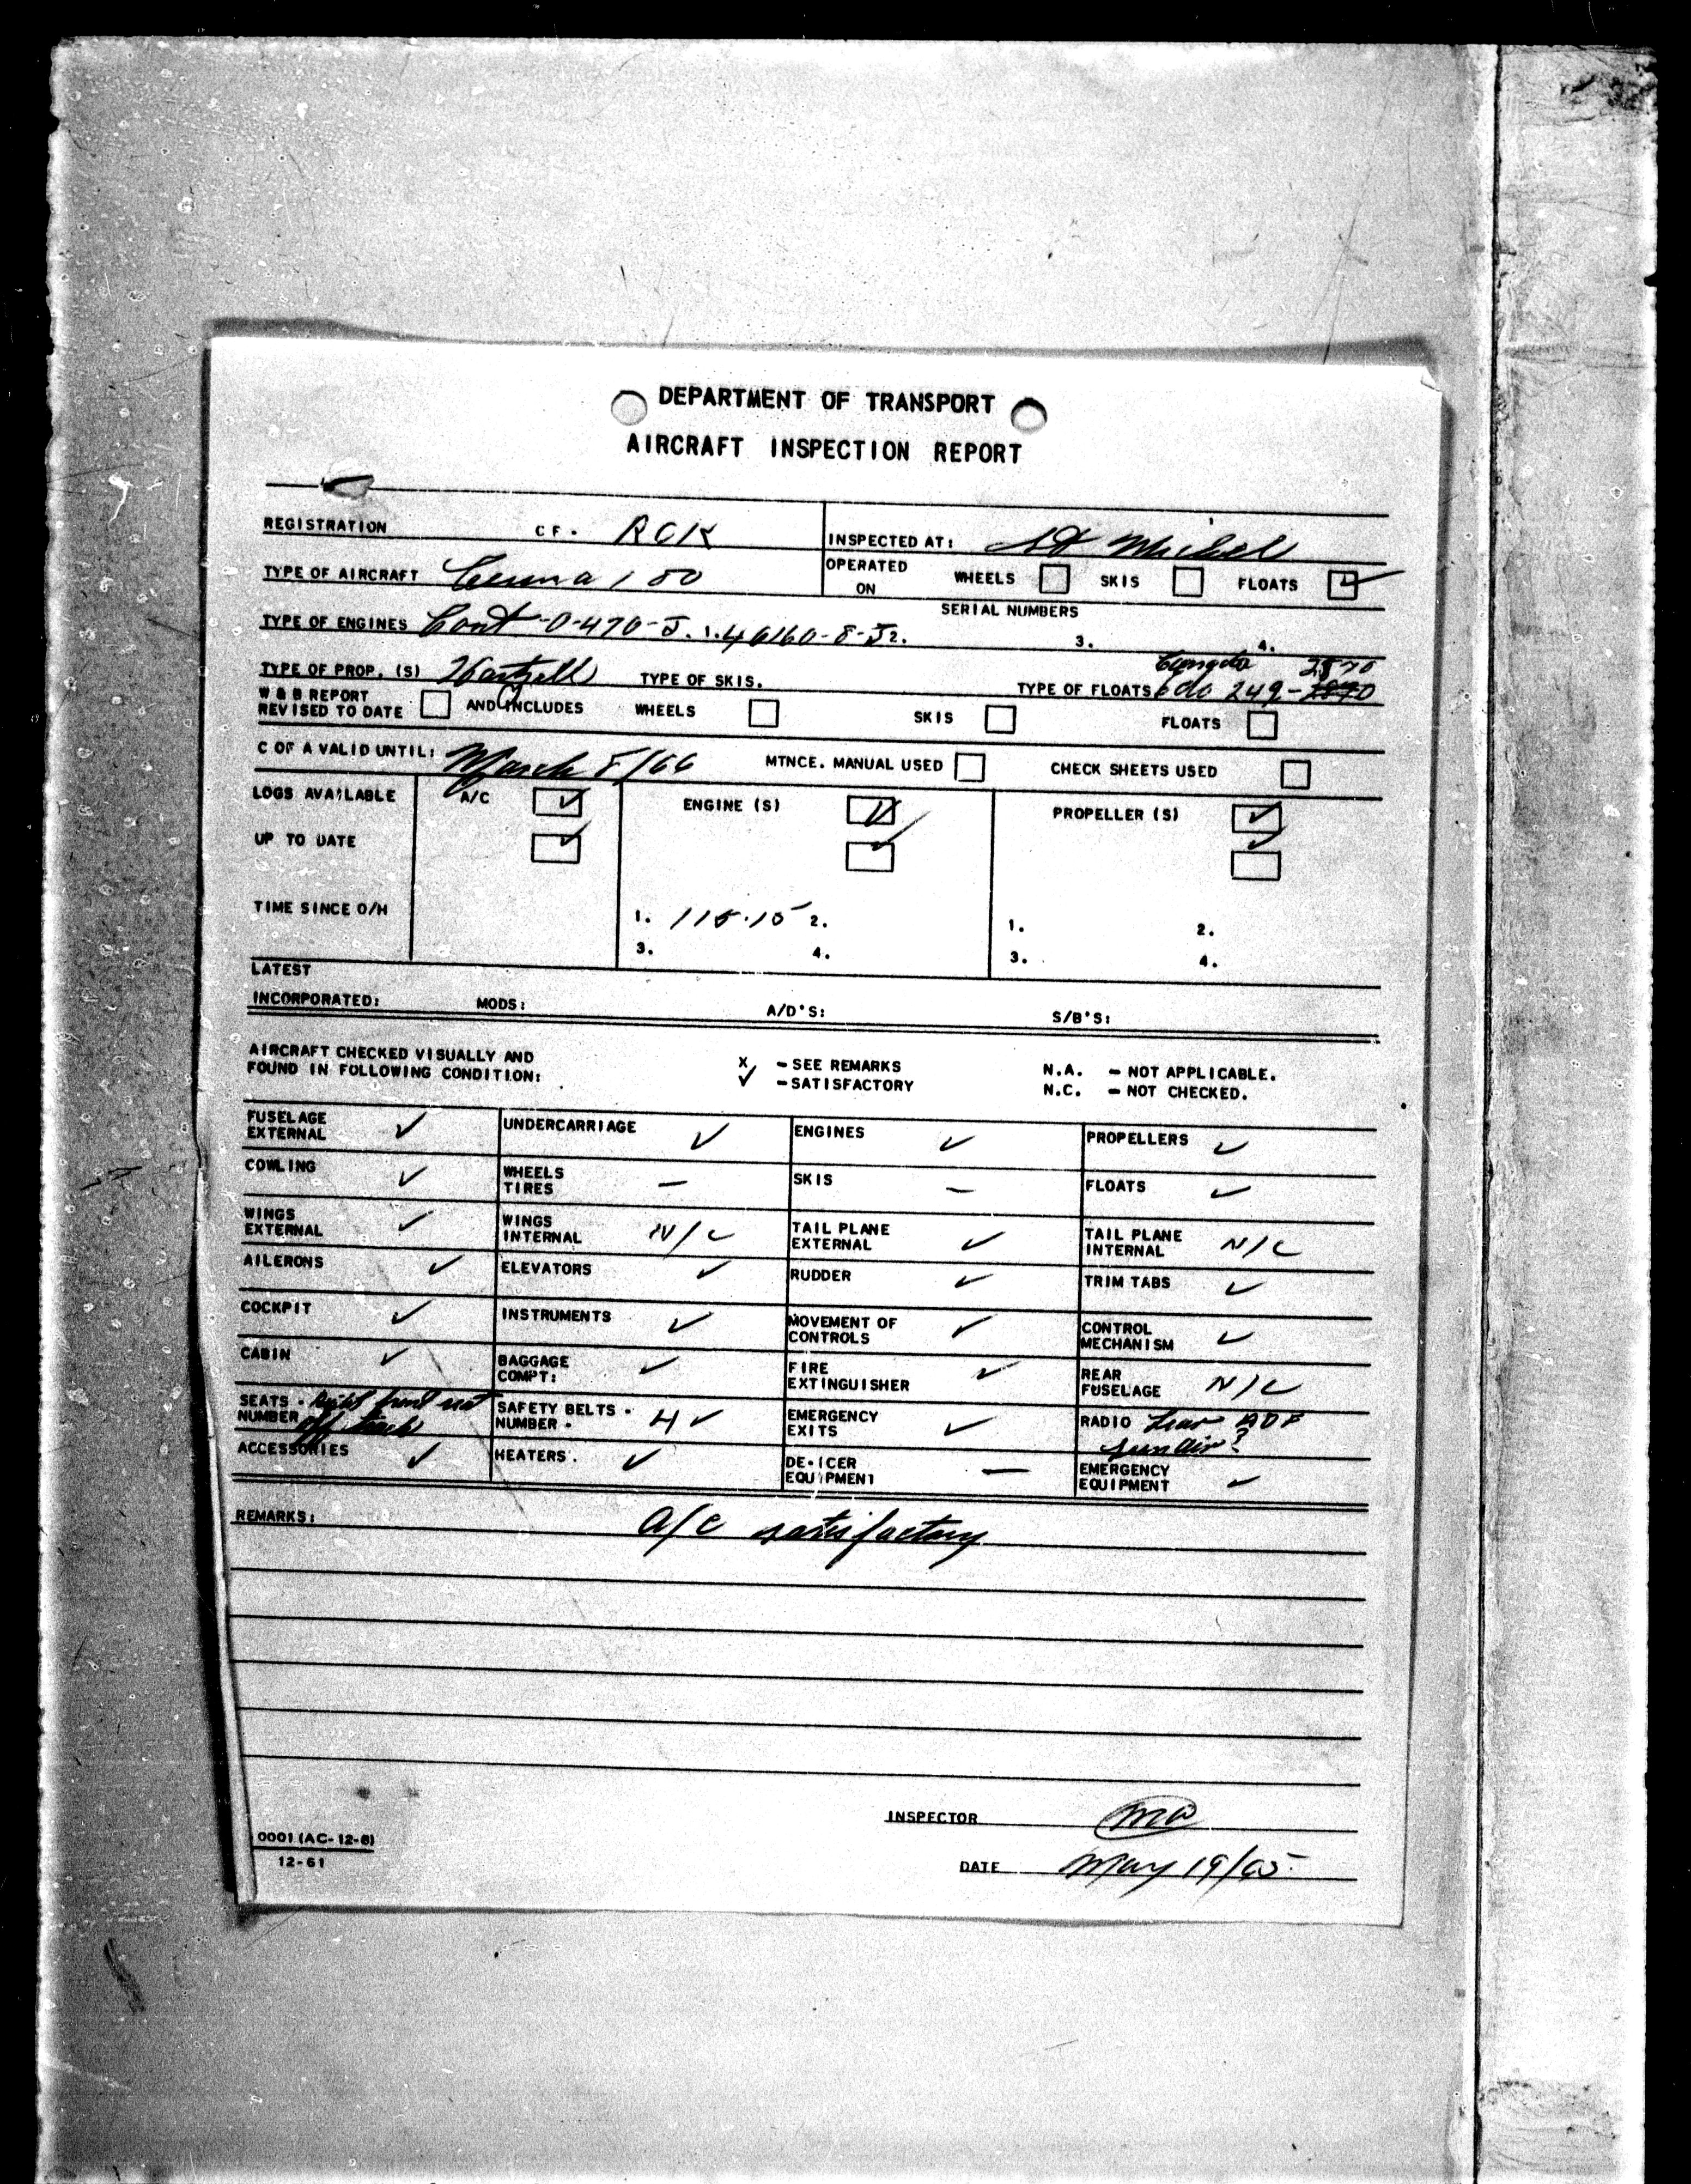 DEPARTMENT OF TRANSPORT
AIRCRAFT INSPECTION REPORT
REGISTRATION CF. RCK INSPECTED AT: St Michel
TYPE OF AIRCRAFT Cessna 180 OPERATED ON WHEELS SKIS FLOATS ✓
SERIAL NUMBERS
TYPE OF ENGINES Cont O-470-J. 1. 46160-8-J 2. 3. 4.
2870
TYPE OF PROP. (S) Hartzell TYPE OF SKIS. TYPE OF FLOATS Edo 249-
W & B REPORT REVISED TO DATE AND INCLUDES WHEELS SKIS FLOATS
C OF A VALID UNTIL: March 8/66 MTNCE. MANUAL USED CHECK SHEETS USED
LOGS AVAILABLE A/C ✓ ENGINE (S) ✓ PROPELLER (S) ✓
UP TO DATE ✓ ✓ ✓
TIME SINCE O/H 1. 115.15 2. 1. 2.
3. 4. 3. 4.
LATEST
INCORPORATED: MODS: A/D'S: S/B'S:
AIRCRAFT CHECKED VISUALLY AND X - SEE REMARKS N.A. - NOT APPLICABLE.
FOUND IN FOLLOWING CONDITION: ✓ - SATISFACTORY N.C. - NOT CHECKED.
FUSELAGE EXTERNAL ✓ UNDERCARRIAGE ✓ ENGINES ✓ PROPELLERS ✓
COWLING ✓ WHEELS TIRES — SKIS — FLOATS ✓
WINGS EXTERNAL ✓ WINGS INTERNAL N/C TAIL PLANE EXTERNAL ✓ TAIL PLANE INTERNAL N/C
AILERONS ✓ ELEVATORS ✓ RUDDER ✓ TRIM TABS ✓
COCKPIT ✓ INSTRUMENTS ✓ MOVEMENT OF CONTROLS ✓ CONTROL MECHANISM ✓
CABIN ✓ BAGGAGE COMPT: ✓ FIRE EXTINGUISHER ✓ REAR FUSELAGE N/C
SEATS - NUMBER Right front seat off track SAFETY BELTS - NUMBER - 4 ✓ EMERGENCY EXITS ✓ RADIO Lear ADF Sunair?
ACCESSORIES ✓ HEATERS. ✓ DE-ICER EQUIPMENT — EMERGENCY EQUIPMENT ✓
REMARKS: A/C satisfactory
INSPECTOR
0001 (AC-12-8)
12-61
DATE May 19/65.